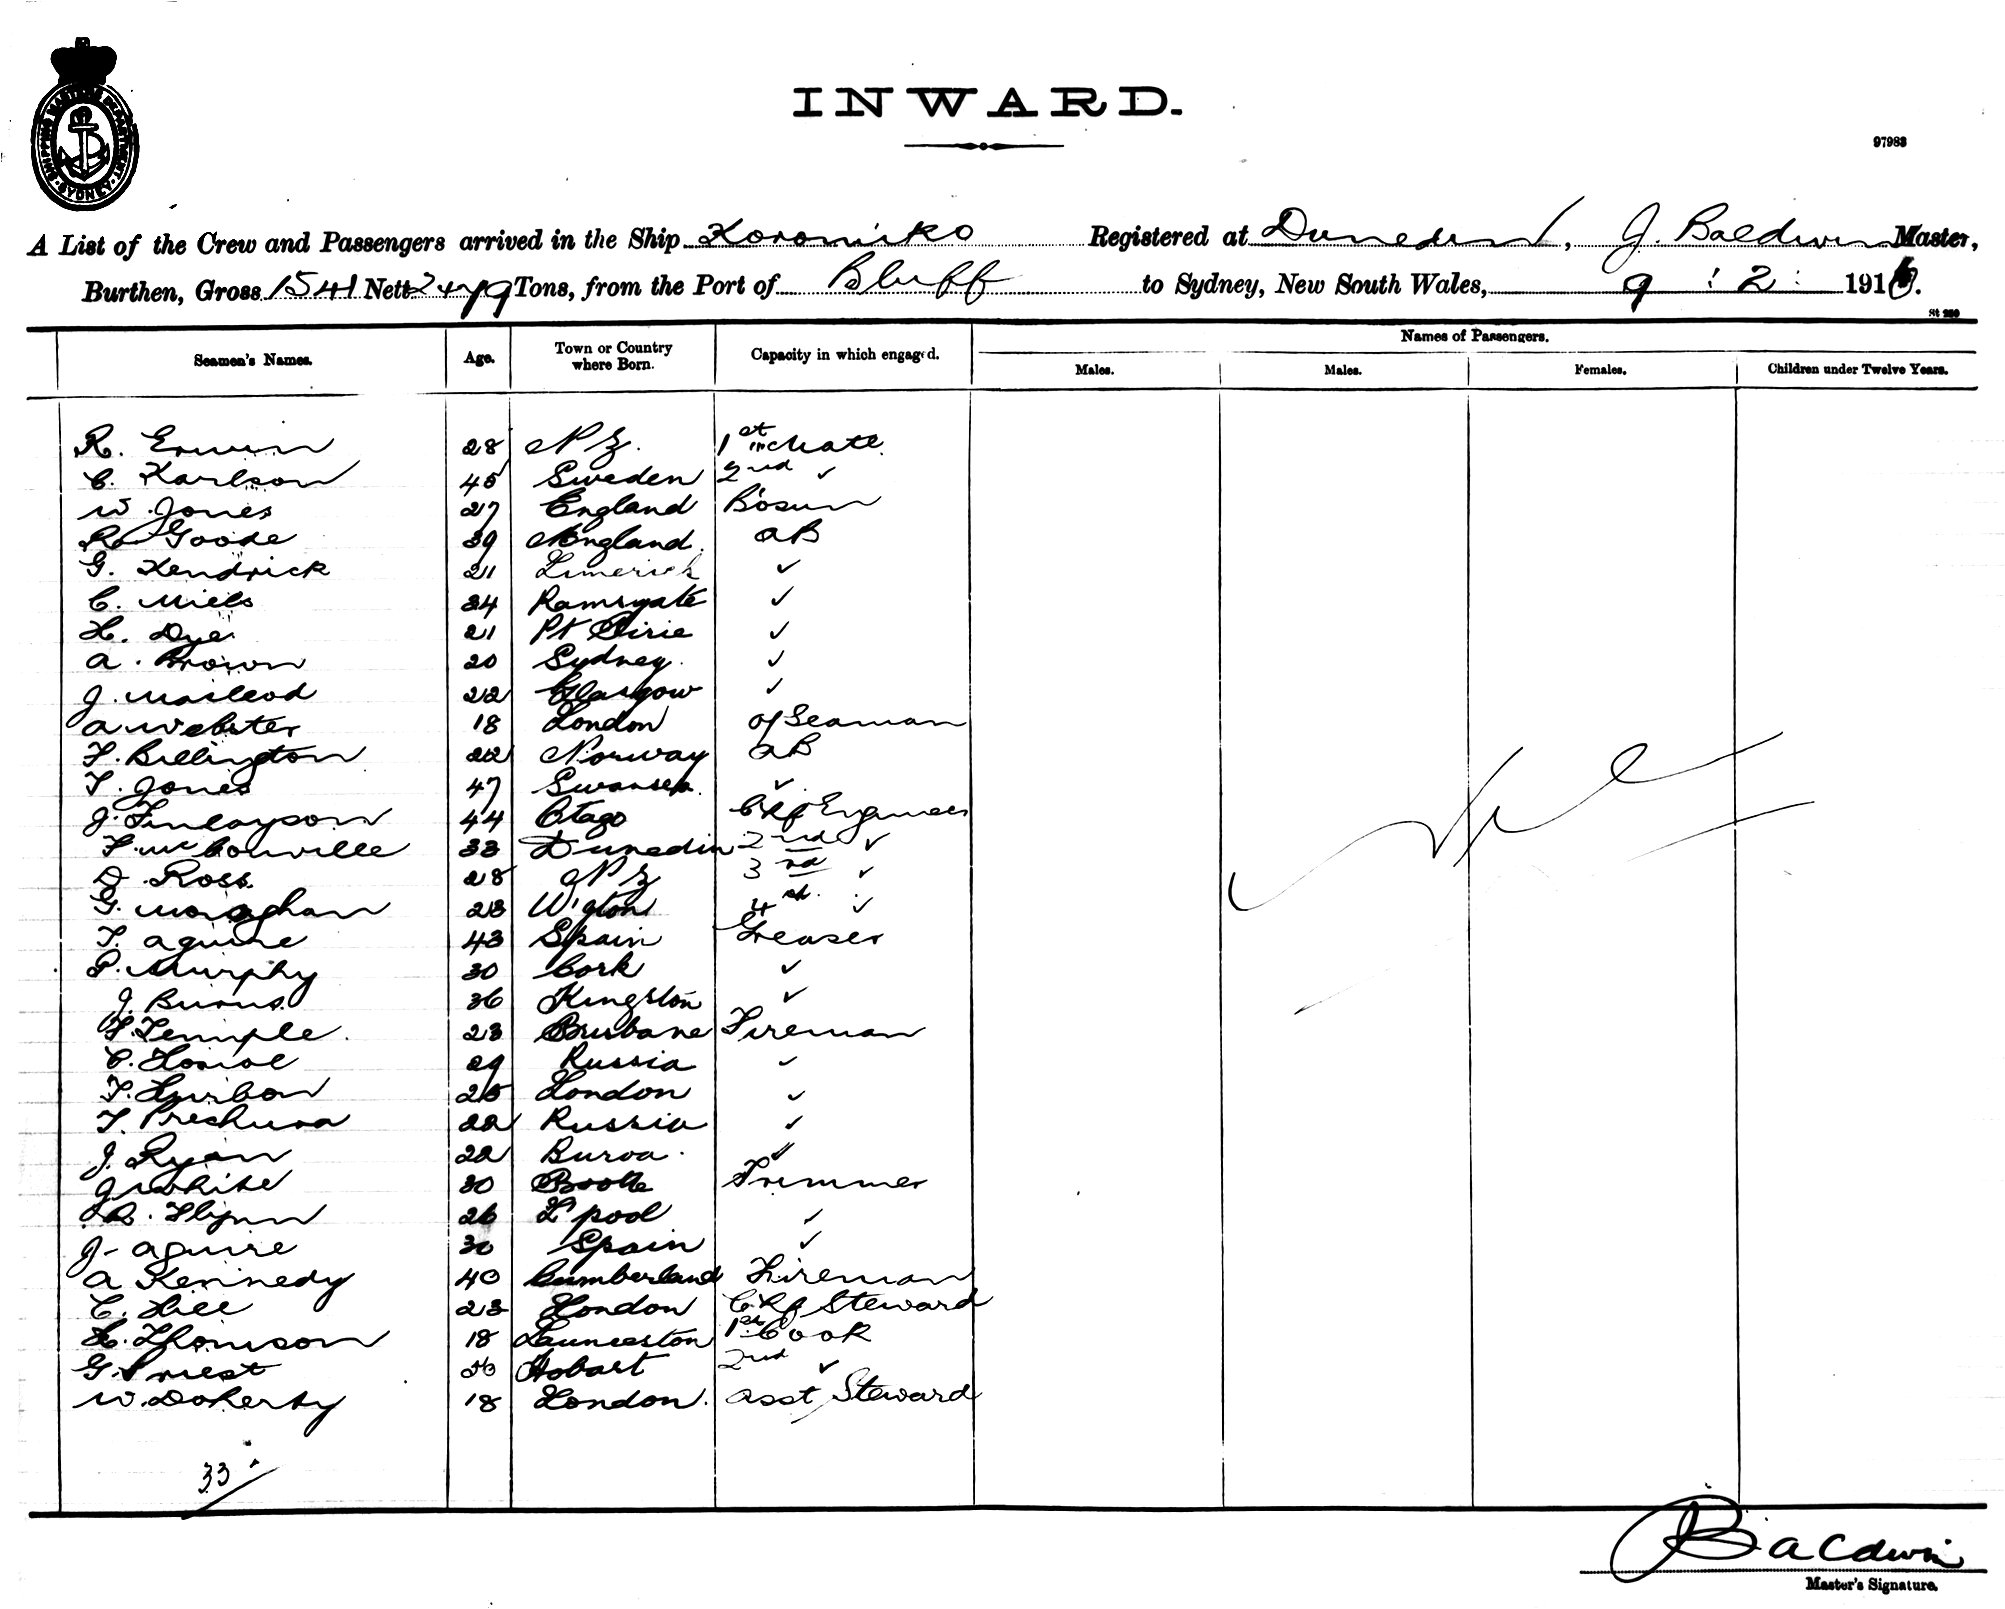 SHIPPING MASTERS DEPARTMENT. SYDNEY.
INWARD.
97983
A List of the Crew and Passengers arrived in the Ship Koromiko Registered at Dunedin, J. Baldwin Master,
Burthen, Gross 1541 Nett 2479 Tons, from the Port of Bluff to Sydney, New South Wales, 9 : 2 : 1916.
St 290
Seamen's Names. Age. Town or Country where Born. Capacity in which engaged. Names of Passengers.
Males. Males. Females. Children under Twelve Years.
R. Erwin 28 NZ. 1st Mate
C. Karlson 45 Sweden 2nd ✓
W. Jones 27 England Bosun
R. Goode 39 England AB
G. Kendrick 21 Limerick ✓
C. Miels 24 Ramsgate ✓
H. Dye 21 Pt Pirie ✓
A. Brown 20 Sydney ✓
J. Macleod 22 Glasgow ✓
A. Webster 18 London O/Seaman
F. Billington 22 Norway AB
T. Jones 47 Swansea ✓
J. Finlayson 44 Otago Chf Engineer
F. McConville 33 Dunedin 2nd ✓
D. Ross 28 NZ 3rd ✓
G. Monaghan 23 W'gton 4th ✓
T. Aguire 43 Spain Greaser
P. Murphy 30 Cork ✓
J. Burns 36 Kingston ✓
F. Temple 23 Brisbane Fireman
C. 29 Russia ✓
T. 25 London ✓
T. 22 Russia ✓
J. Ryan 22 ✓
J. White 30 Bootle Trimmer
R. Flynn 26 L'pool ✓
J. Aguire 30 Spain ✓
A Kennedy 40 Cumberland Fireman
C. Hill 23 London Chf Steward
H. Thomson 18 Launceston 1st Cook
G. Priest Hobart 2nd ✓
W. Doherty 18 London. Asst Steward
33
Nil
Baldwin
Master's Signature.